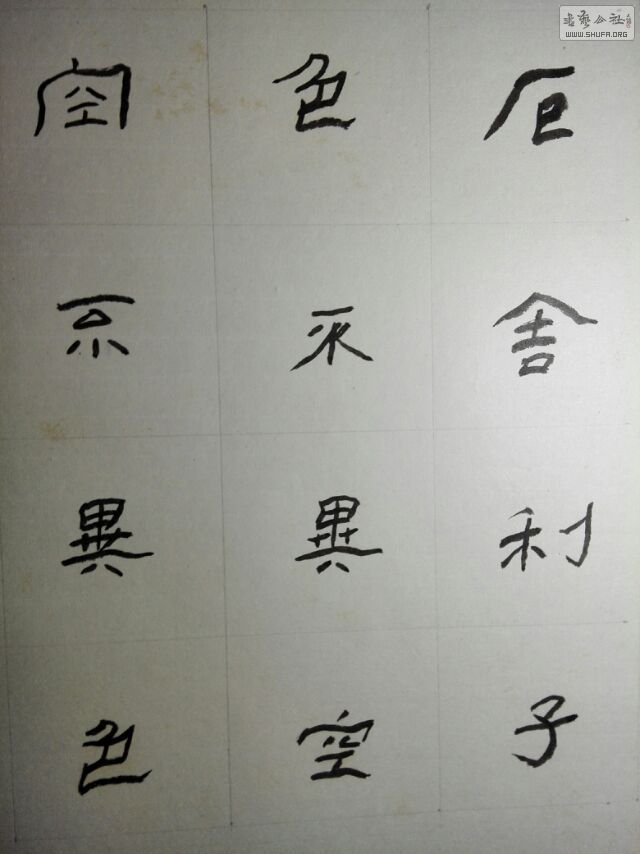 厄舍利子
色不異空
空不異色
書藝公社
WWW.SHUFA.ORG